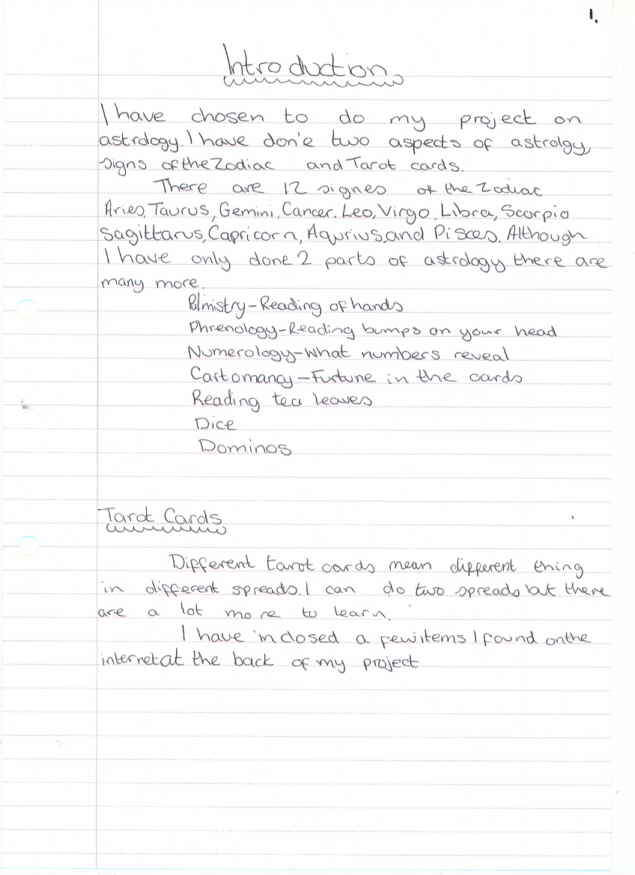 1.
Introduction
I have chosen to do my project on
astrology. I have don'e two aspects of astrolgy,
signs of the Zodiac and Tarot cards.
There are 12 signes of the Zodiac
Aries, Taurus, Gemini, Cancer, Leo, Virgo, Libra, Scorpio
Sagittarus, Capricorn, Aqurius, and Pisces. Although
I have only done 2 parts of astrology there are
many more.
Palmistry-Reading of hands
Phrenology-Reading bumps on your head
Numerology-What numbers reveal
Cartomancy-Furtune in the cards
Reading tea leaves
Dice
Dominos
Tarot Cards
Different tarot cards mean different thing
in different spreads. I can do two spreads but there
are a lot more to learn.
I have inclosed a few items I found on the
internet at the back of my project